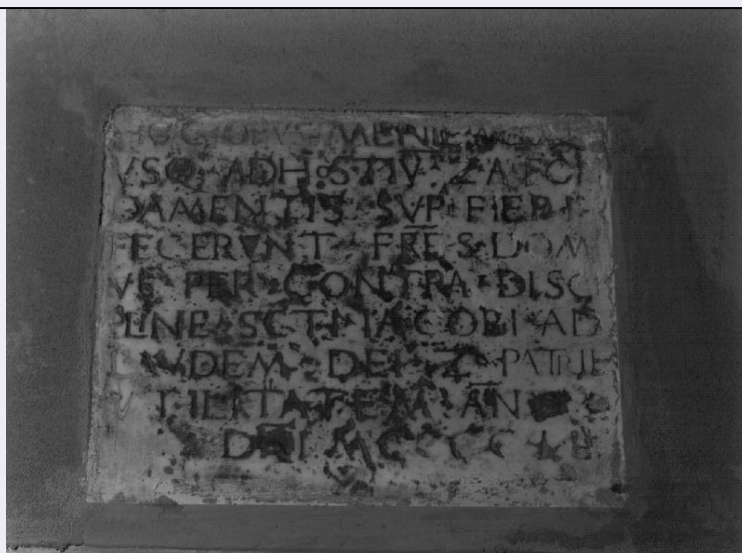 HOC OPVS MENIE
VSQ ADH OSTIV Z A FO
DAMENTIS SVP FIERI
FECERVNT FRES DOM
VE PER CONTRA DISCI
PLINE SCTI IACOBI AD
LAVDEM DEI Z PATRIE
VTILITATEM AN
DNI MCCCC